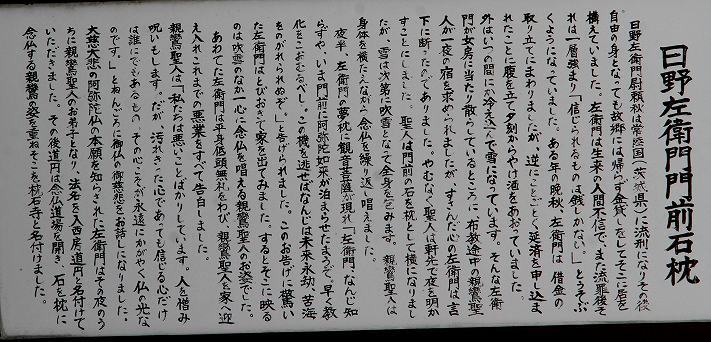 日野左衛門門前石枕
日野左衛門尉頼秋は常陸国(茨城県)に流刑になりその後
自由の身となっても故郷には帰らず金貸しをしてそこに居を
構えていました。左衛門は生来の人間不信で、また流罪後そ
れは一層強まり「信じられるものは銭しかない。」とうそぶ
くようになっていました。ある年の晩秋、左衛門は借金の
取り立てにまわりましたが、逆にことごとく延済を申し込ま
れたことに腹を立て夕刻からやけ酒をあおっていました。
外はいつの間にか冷え込んで雪になっています。そんな左衛
門が女房に当たり散らしているところに、布教途中の親鸞聖
人が一夜の宿を求められましたが、すさんだ心の左衛門は言
下に断ったのでありました。やむなく聖人は軒先で夜を明か
すことにしました。聖人は門前の石を枕として横になりまし
たが、雪は次第に吹雪となって全身を包みます。親鸞聖人は
身体を横たえながら念仏を繰り返し唱えました。
夜半、左衛門の夢枕に観音菩薩が現れ「左衛門、なんじ知
らずや、いま門前に阿弥陀如来が泊まらせたまうぞ、早く教
化をこおむるべし。この機を逃せばなんじは未来永劫、苦海
をのがれられぬぞ。」と告げられました。このお告げに驚い
た左衛門はとびおきて家を出てみました。するとそこに映る
のは吹雪のなか一心に念仏を唱える親鸞聖人のお姿でした。
あわてた左衛門は平身低頭無礼をわび、親鸞聖人を家へ迎
え入れこれまでの悪業をすべて告白しました。
親鸞聖人は「私たちは悪いことばかりしています。人を憎み
呪いもします。だが、汚れきった心であっても信じる心だけ
は誰にでもあるもの、その心こそが永遠にかがやく仏の光な
のです。」とねんごろに御仏の御慈悲をお話しになりました。
大慈大悲の阿弥陀仏の本願を知らされた左衛門はその夜のう
ちに親鸞聖人のお弟子となり、法名を入西房道円と名付けて
いただきました。その後道円は念仏道場を開き、石を枕に
念仏する親鸞の姿を重ねそこを枕石寺と名付けました。